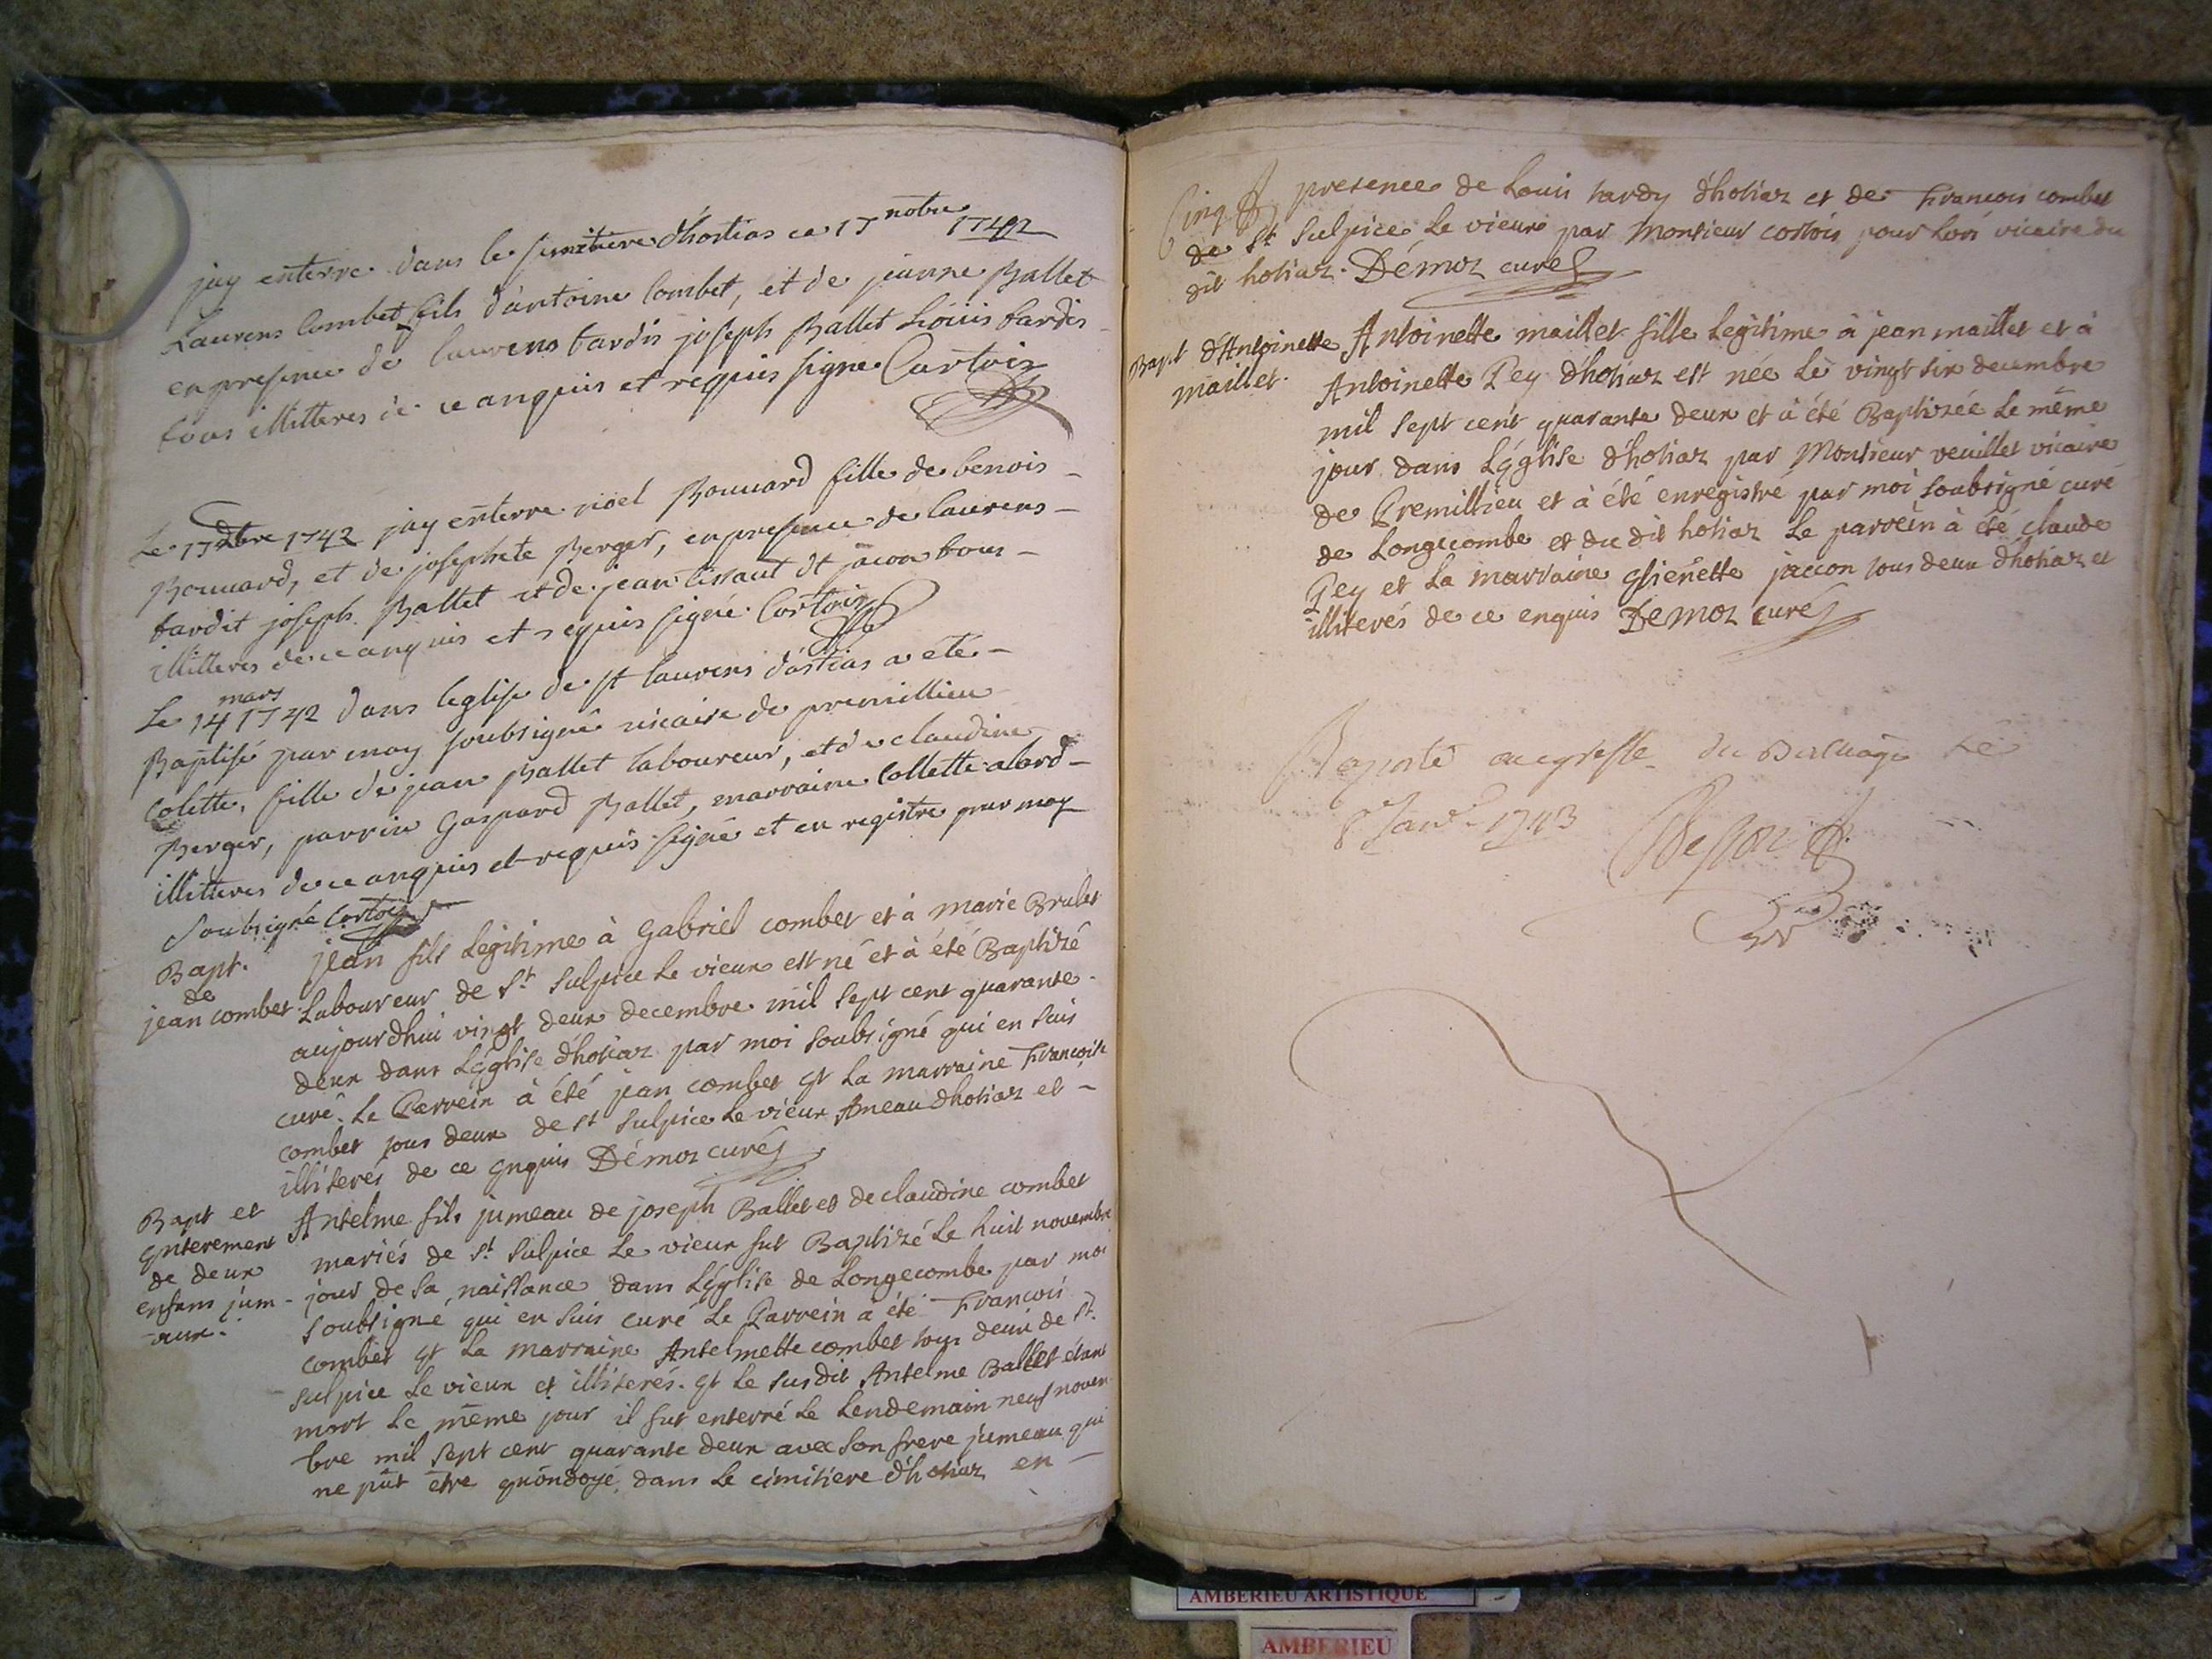 jay enterre dans le simitiere d'hostias ce 17 nobre 1742
Laurens Combet fils d'antoine Combet, et de jeanne Ballet
en presence de laurens tardis joseph Ballet Loüis tardis
tous illitteres de ce anquis et requis signe Curtois
Le 17 Xbre 1742 jay enterre noel Bouuard fille de benois
Bouuard, et de josephete Berger, en presence de laurens
tardit joseph Ballet et de jean tissaut dt jacon tous
illitteres de ce anquis et requis signé Cortois
Le 14 mars 1742 dans leglise de st laurens d'ostias a ete
Baptisé par moy soubsigné vicaire de premillieu
Colette, fille de jean Ballet laboureur, et de claudine
Berger, parrin Gaspard Ballet, marraine Collette abord
illitteres de ce anquis et requis signé et en registre par moy
Soubsigné Cortois
Bapt. de jean combet
jean fils Legitime à Gabriel combet et à marie Brulet
Laboureur de St Sulpice Le vieux est né et à été Baptizé
aujourdhui vingt deux decembre mil sept cent quarante
deux dans Légglise d'hotiaz par moi soubsigné qui en suis
curé. Le Parrein à été jean combet et La marraine Francoise
combet tous deux de st Sulpice Le vieux Aneau d'hotiaz et
illiterés de ce enquis Démoz curé
Bapt et
enterement
de deux
enfans jum-
aux.
Antelme fils jumeau de joseph Ballet et de claudine combet
mariés de St Sulpice Le vieux fut Baptizé Le huit novembre
jour de sa naissance dans Légglise de Longecombe par moi
soubsigné qui en suis curé Le Parrein à été Francois
combet et La marraine Antelmette combet tous deux de St
Sulpice Le vieux et illiterés. et Le susdit Antelme Ballet étant
mort Le même jour il fut enterré Le Lendemain neuf novem
bre mil sept cent quarante deux avec son frere jumeau qui
ne pût être endoyé, dans Le cimitiere d'hotiaz en
presence de Louis tardy d'hotiaz et de Francois combet
de St Sulpice Le vieux par Monsieur cortois pour Lors vicaire du
dit hotiaz. Démoz curé
Bapt d'Antoinette
maillet.
Antoinette maillet fille Legitime à jean maillet et à
Antoinette Pey d'hotiaz est née Le vingt six decembre
mil sept cent quarante deux et à été Baptizée Le même
jour dans Légglise d'hotiaz par Monsieur veuillet vicaire
de Premillieu et à été enregistré par moi soubsigné curé
de Longecombe et du dit hotiaz Le parrein à été claude
Pey et La marraine jaccon tous deux d'hotiaz et
illiterés de ce enquis Demoz curé
au greffe du Le
8 Janv. 1743
AMBERIEU ARTISTIQUE
AMBERIEU